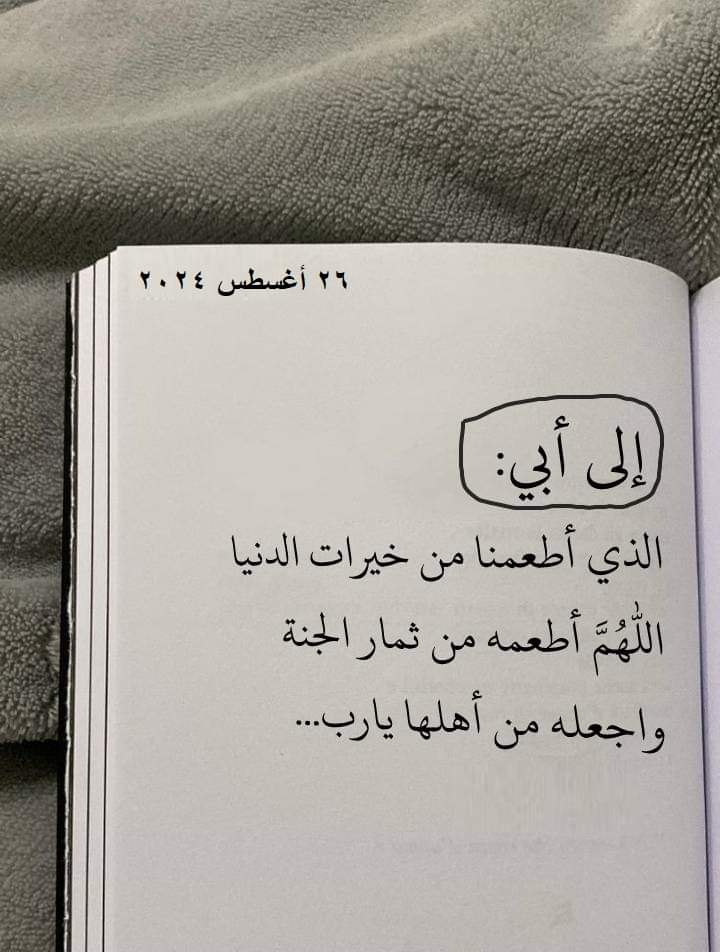 ٢٦ أغسطس ٢٠٢٤
إلى أبي:
الذي أطعمنا من خيرات الدنيا
اللَّهُمَّ أطعمه من ثمار الجنة
واجعله من أهلها يارب...